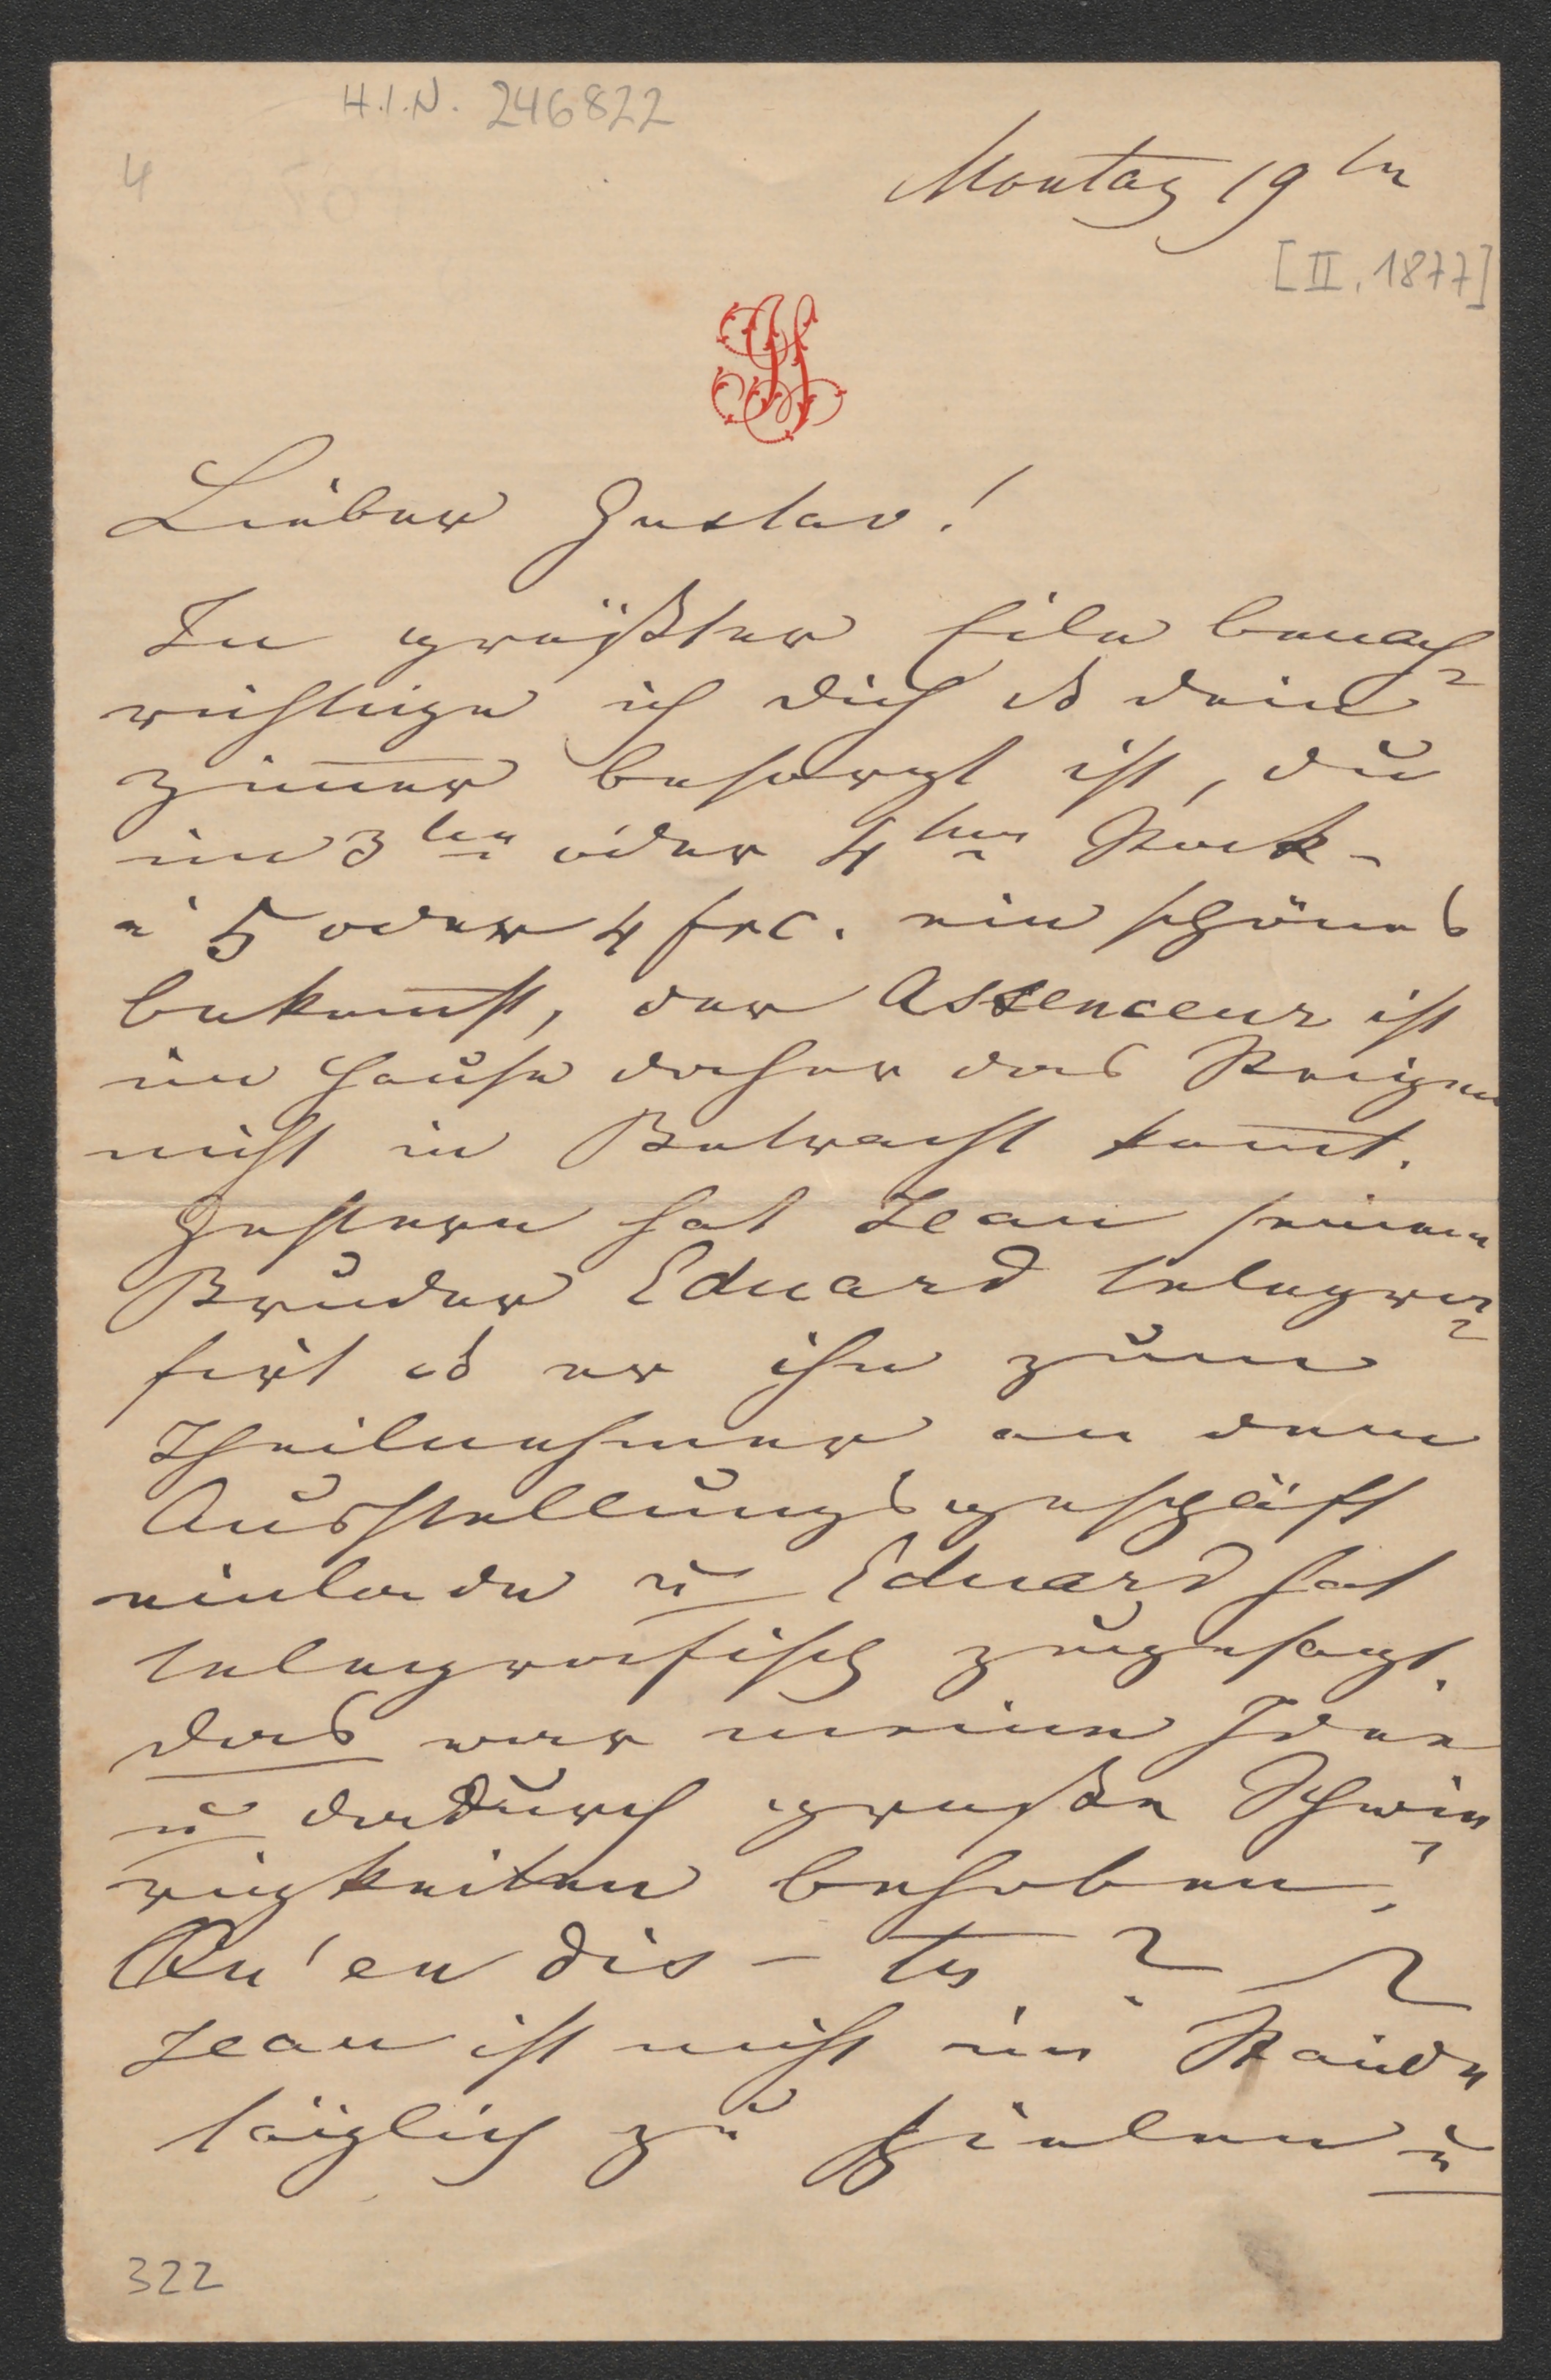 H.I.N. 246822
4
Montag 19ten
[II. 1877]
JS
Lieber Gustav!
In größter Eile benach-
richtige ich dich dß dein
Zim̅er besorgt ist, du
im 3ten oder 4ten Stock -
à 5 oder 4 frc. ein schönes
bekom̅st, der Assenceur ist
im Hause daher das Steigen
nicht in Betracht kom̅t.
Gestern hat Jean seinem
Bruder Eduard telegra-
firt dß er ihn zum
Theilnehmer an dem
Ausstellungsgeschäft
einlade u Eduard hat
telegrafisch zugesagt.
das war meine Idee
u dadurch große Schwie-
rigkeiten behoben;
Qu'en dis-tu?
Jean ist nicht im Stande
täglich zu spielen u
322